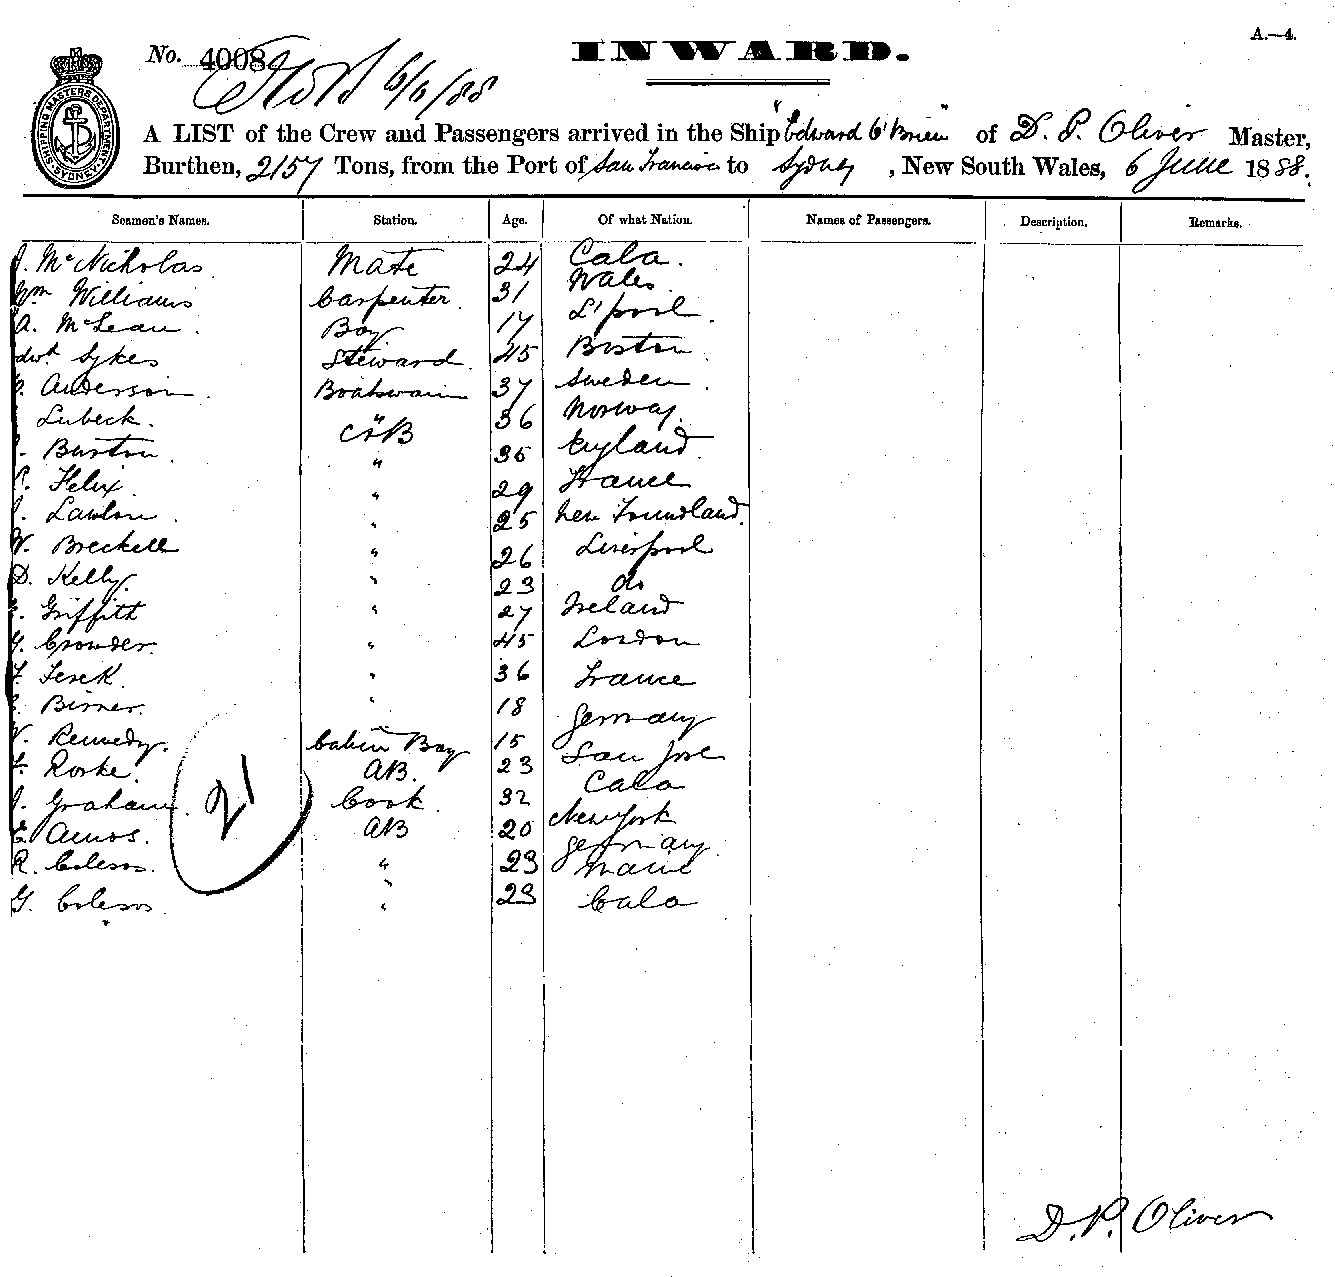 A.—4.
No. 4008
INWARD.
6/6/88
SHIPPING MASTERS DEPARTMENT SYDNEY
A LIST of the Crew and Passengers arrived in the Ship "Edward O'Brien" of D. P. Oliver Master,
Burthen, 2157 Tons, from the Port of San Francisco to Sydney, New South Wales, 6 June 1888.
Seamen's Names. Station. Age. Of what Nation. Names of Passengers. Description. Remarks.
J. McNicholas. Mate 24 Cala.
Wm Williams Carpenter. 31 Wales.
A. McLean. Boy 17 L'pool.
Edwd Sykes Steward. 45 Boston.
Anderson. Boatswain 37 Sweden.
Lubeck. " 36 Norway.
Burton. AB 35 England.
Felix. " 29 France
J. Lawlon. " 25 New Foundland.
W. Breckell " 26 Liverpool
D. Kelly. " 23 do
Griffith " 27 Ireland
G. Crowder. " 45 London
F. Terck. " 36 France
Birner. " 18 Germany
W. Kennedy. Cabin Boy 15 San Jose
F. Rorke. AB. 23 Cala
J. Graham. Cook. 32 New York
E. Amos. AB 20 Germany.
R. Coleson. " 23 Maine
G. Coleson " 23 Cala
21
D. P. Oliver